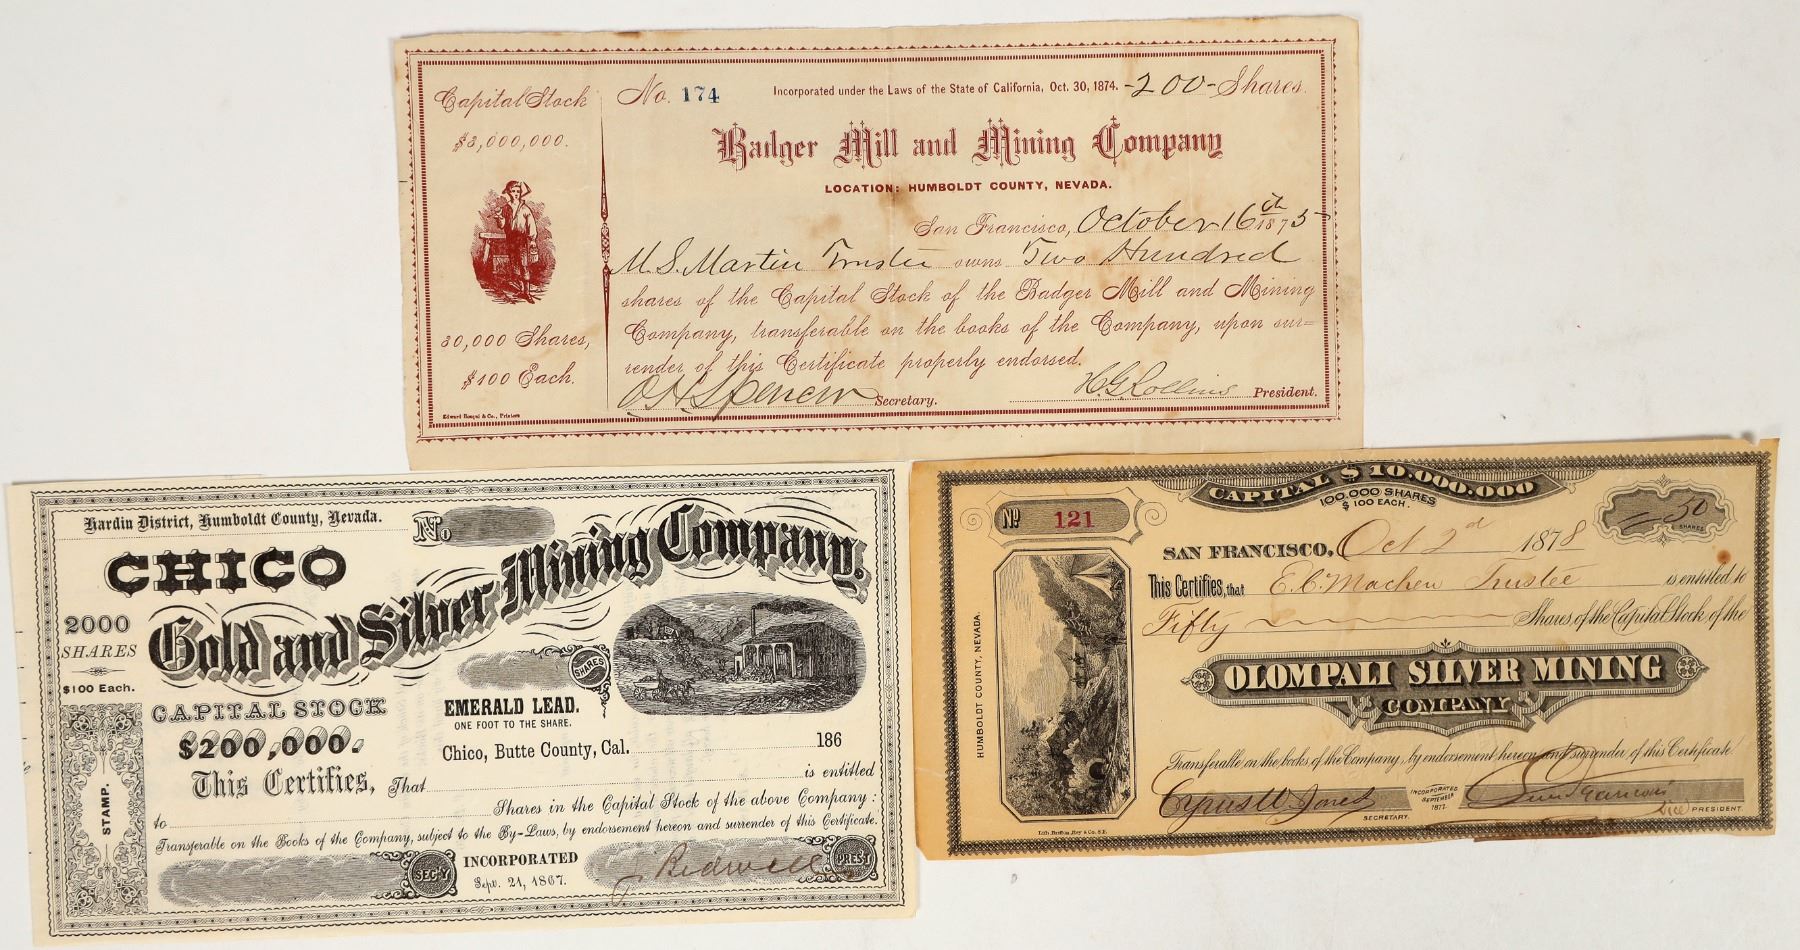 Capital Stock
$3,000,000.
30,000 Shares,
$100 Each.
Edward Bosqui & Co., Printers
No. 174 Incorporated under the Laws of the State of California, Oct. 30, 1874. -200- Shares.
Badger Mill and Mining Company
LOCATION: HUMBOLDT COUNTY, NEVADA.
San Francisco, October 16th 1875
M. S. Martin Trustee owns Two Hundred
shares of the Capital Stock of the Badger Mill and Mining
Company, transferable on the books of the Company, upon sur=
render of this Certificate properly endorsed.
O H Spencer Secretary. H G Rollins President.
Hardin District, Humboldt County, Nevada. No
CHICO
Gold and Silver Mining Company.
2000
SHARES
$100 Each.
SHARES
CAPITAL STOCK
$200,000.
EMERALD LEAD.
ONE FOOT TO THE SHARE.
Chico, Butte County, Cal. 186
This Certifies, That is entitled
to Shares in the Capital Stock of the above Company:
Transferable on the Books of the Company, subject to the By-Laws, by endorsement hereon and surrender of this Certificate.
STAMP.
SEC-Y INCORPORATED J. Bidwell PRES-T
Sept. 21, 1867.
CAPITAL $10.000.000
100.000 SHARES
$100 EACH.
No 121
50 SHARES
SAN FRANCISCO, Oct 2d 1878
This Certifies, that E. C. Machen Trustee is entitled to
Fifty Shares of the Capital Stock of the
OLOMPALI SILVER MINING
COMPANY
HUMBOLDT COUNTY, NEVADA.
Transferable on the books of the Company, by endorsement hereon and surrender of this Certificate.
Cyrus W Jones
SECRETARY.
INCORPORATED
SEPTEMBER
1877.
Vice PRESIDENT.
Lith. Britton, Rey & Co. S.F.